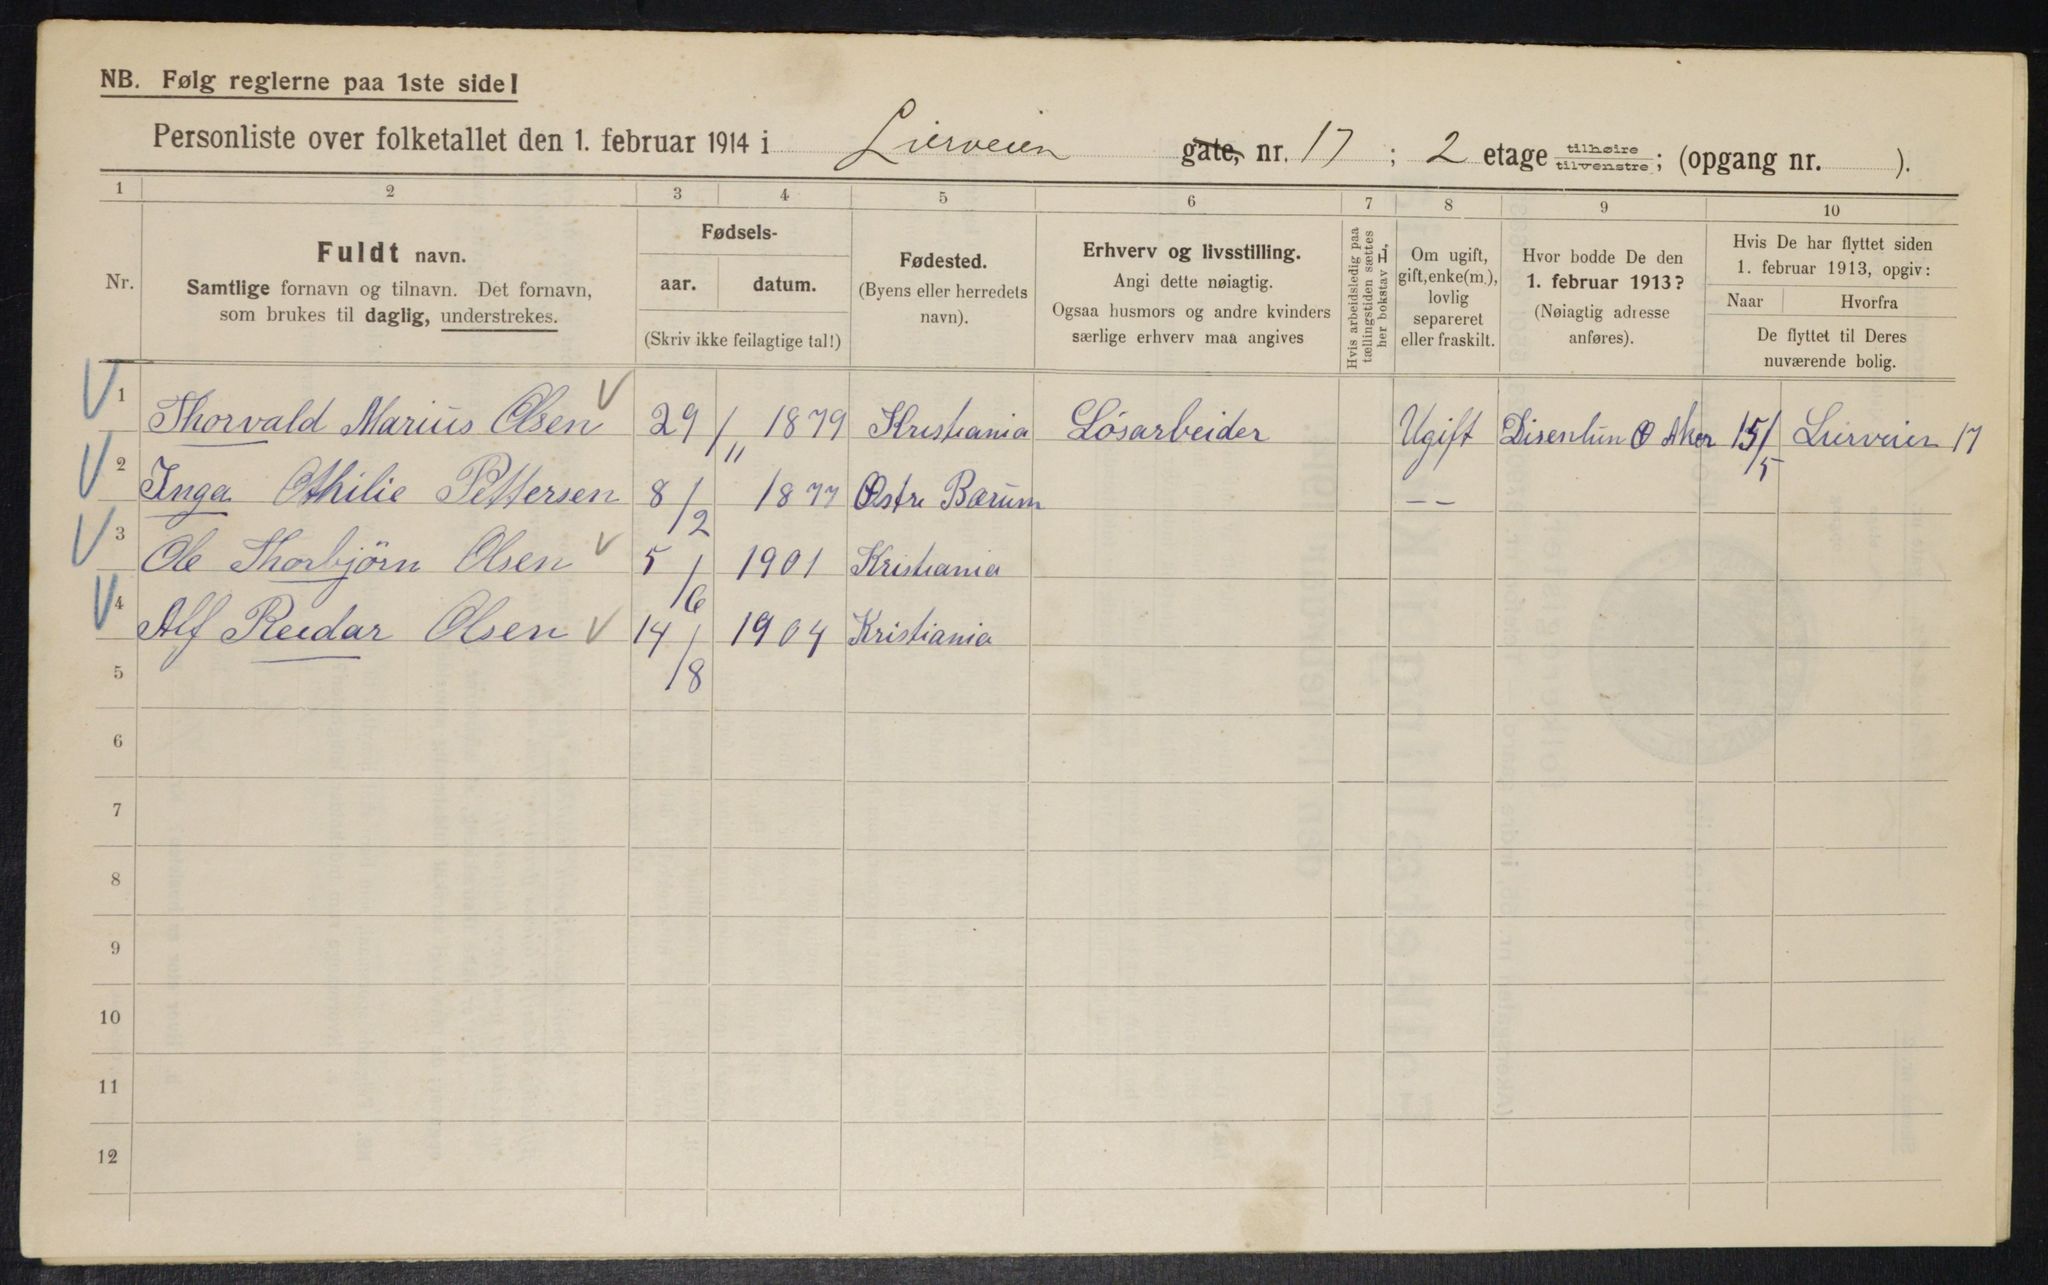 NB. Følg reglerne paa 1ste side!
Personliste over folketallet den 1. februar 1914 i Lierveien gate, nr. 17 ; 2 etage tilhøire tilvenstre ; (opgang nr. ).
1 2 3 4 5 6 7 8 9 10
Nr.
Fuldt navn.
Samtlige fornavn og tilnavn. Det fornavn,
som brukes til daglig, understrekes.
Fødsels-
aar. datum.
(Skriv ikke feilagtige tal!)
Fødested.
(Byens eller herredets
navn).
Erhverv og livsstilling.
Angi dette nøiagtig.
Ogsaa husmors og andre kvinders
særlige erhverv maa angives
Hvis arbeidsledig paa
tællingstiden sættes
her bokstav L.
Om ugift,
gift, enke(m.),
lovlig
separeret
eller fraskilt.
Hvor bodde De den
1. februar 1913?
(Nøiagtig adresse
anføres).
Hvis De har flyttet siden
1. februar 1913, opgiv:
Naar Hvorfra
De flyttet til Deres
nuværende bolig.
1 Thorvald Marius Olsen 29/11 1879 Kristiania Løsarbeider Ugift Disenlun Ø Aker 15/5 Lierveien 17
2 Inga Othilie Pettersen 8/2 1877 Østre Bærum — —
3 Ole Thorbjörn Olsen 5/6 1901 Kristiania
4 Alf Reidar Olsen 14/8 1904 Kristiania
5
6
7
8
9
10
11
12